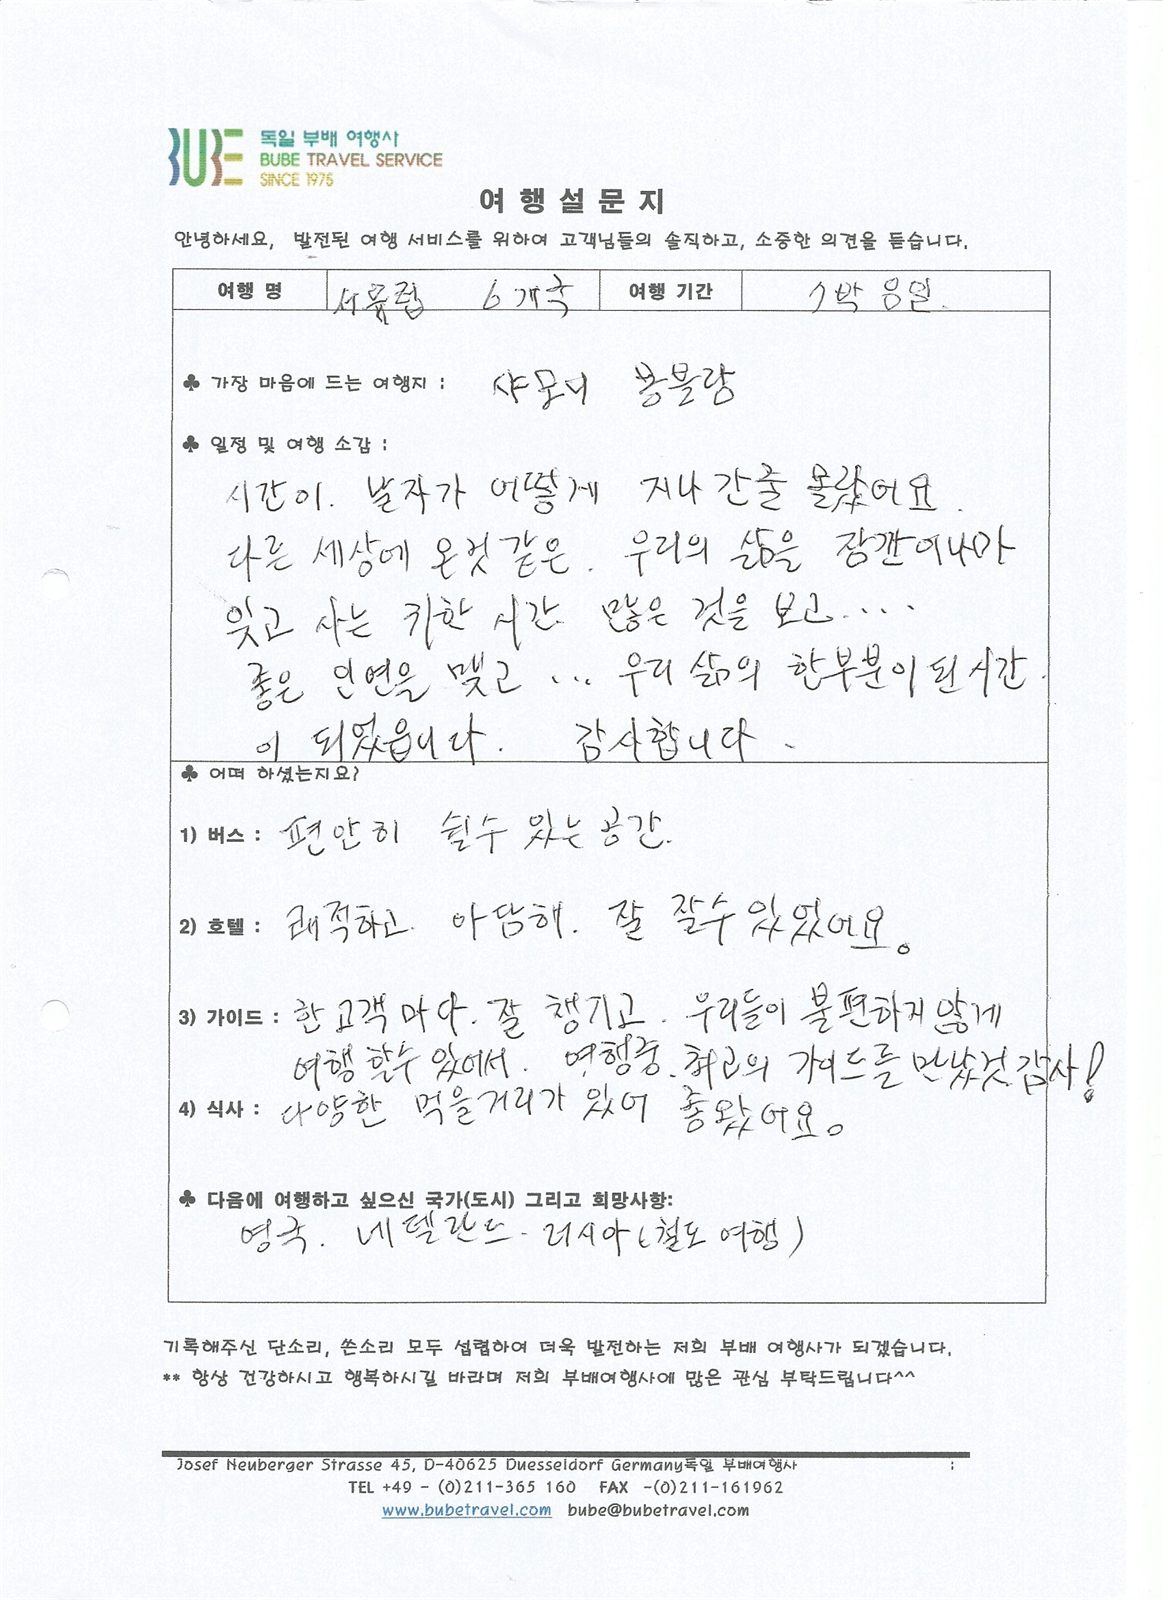 BUBE 독일 부배 여행사
BUBE TRAVEL SERVICE
SINCE 1975
여 행 설 문 지
안녕하세요, 발전된 여행 서비스를 위하여 고객님들의 솔직하고, 소중한 의견을 듣습니다.
여행 명 서유럽 6개국 여행 기간 7박 8일.
♣ 가장 마음에 드는 여행지 : 샤모니 몽블랑
♣ 일정 및 여행 소감 :
시간이. 날자가 어떻게 지나간줄 몰랐어요.
다른 세상에 온것 같은. 우리의 삶을 잠깐이나마
잊고 사는 귀한 시간. 많은 것을 보고....
좋은 인연을 맺고 ... 우리 삶의 한부분이 된 시간.
이 되었읍니다. 감사합니다.
♣ 어떠 하셨는지요?
1) 버스 : 편안히 쉴수 있는 공간.
2) 호텔 : 쾌적하고. 아담해. 잘 잘수 있었어요.
3) 가이드 : 한고객마다. 잘 챙기고. 우리들이 불편하지 않게
여행 할수 있어서. 여행중. 최고의 가이드를 만났것 감사!
4) 식사 : 다양한 먹을거리가 있어 좋왔어요.
♣ 다음에 여행하고 싶으신 국가(도시) 그리고 희망사항:
영국. 네델란드. 러시아(철도 여행)
기록해주신 단소리, 쓴소리 모두 섭렵하여 더욱 발전하는 저희 부배 여행사가 되겠습니다.
** 항상 건강하시고 행복하시길 바라며 저희 부배여행사에 많은 관심 부탁드립니다^^
Josef Neuberger Strasse 45, D-40625 Duesseldorf Germany독일 부배여행사 :
TEL +49 - (0)211-365 160 FAX -(0)211-161962
www.bubetravel.com bube@bubetravel.com